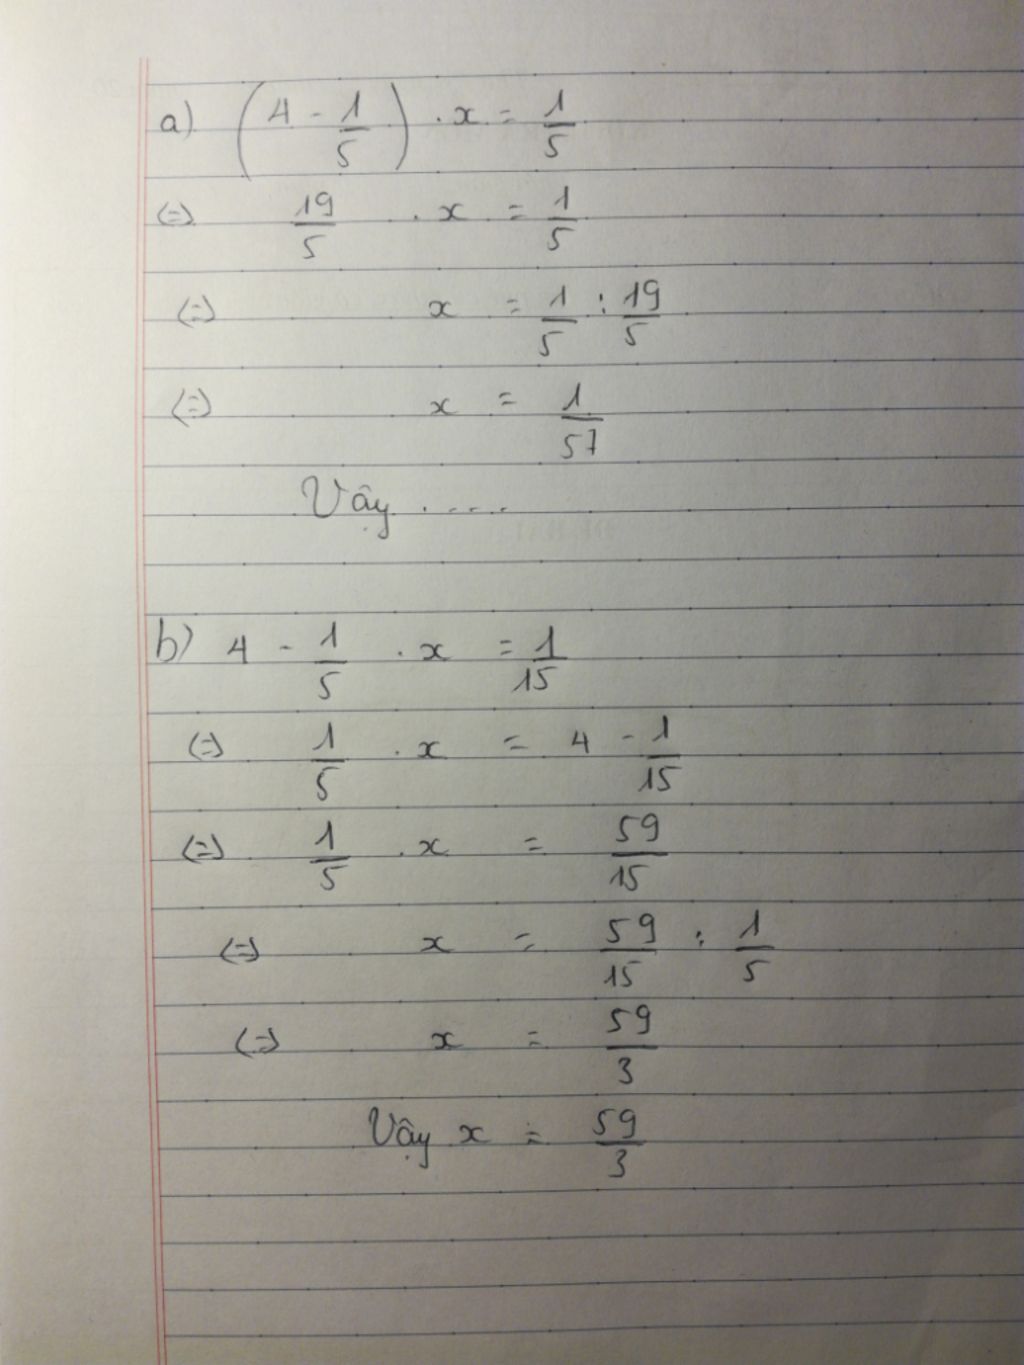 a) (4 - 1/5) . x = 1/5
(=) 19/5 . x = 1/5
(=) x = 1/5 : 19/5
(=) x = 1/57
Vậy .....
b) 4 - 1/5 . x = 1/15
(=) 1/5 . x = 4 - 1/15
(=) 1/5 . x = 59/15
(=) x = 59/15 : 1/5
(=) x = 59/3
Vậy x = 59/3